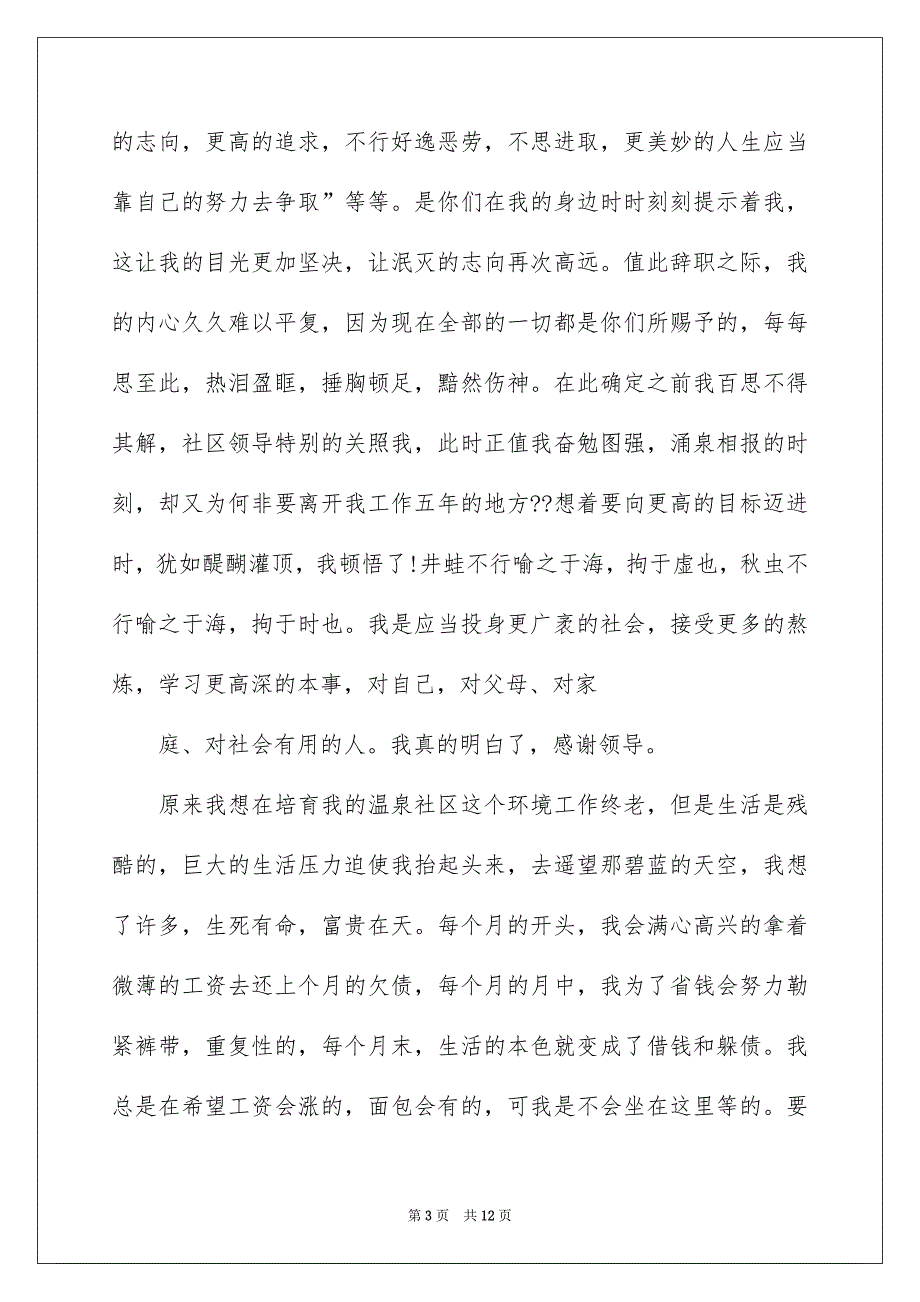 的志向，更高的追求，不行好逸恶劳，不思进取，更美妙的人生应当
靠自己的努力去争取”等等。是你们在我的身边时时刻刻提示着我，
这让我的目光更加坚决，让泯灭的志向再次高远。值此辞职之际，我
的内心久久难以平复，因为现在全部的一切都是你们所赐予的，每每
思至此，热泪盈眶，捶胸顿足，黯然伤神。在此确定之前我百思不得
其解，社区领导特别的关照我，此时正值我奋勉图强，涌泉相报的时
刻，却又为何非要离开我工作五年的地方??想着要向更高的目标迈进
时，犹如醍醐灌顶，我顿悟了!井蛙不行喻之于海，拘于虚也，秋虫不
行喻之于海，拘于时也。我是应当投身更广袤的社会，接受更多的熬
炼，学习更高深的本事，对自己，对父母、对家
庭、对社会有用的人。我真的明白了，感谢领导。
原来我想在培育我的温泉社区这个环境工作终老，但是生活是残
酷的，巨大的生活压力迫使我抬起头来，去遥望那碧蓝的天空，我想
了许多，生死有命，富贵在天。每个月的开头，我会满心高兴的拿着
微薄的工资去还上个月的欠债，每个月的月中，我为了省钱会努力勒
紧裤带，重复性的，每个月末，生活的本色就变成了借钱和躲债。我
总是在希望工资会涨的，面包会有的，可我是不会坐在这里等的。要
第 3 页 共 12 页